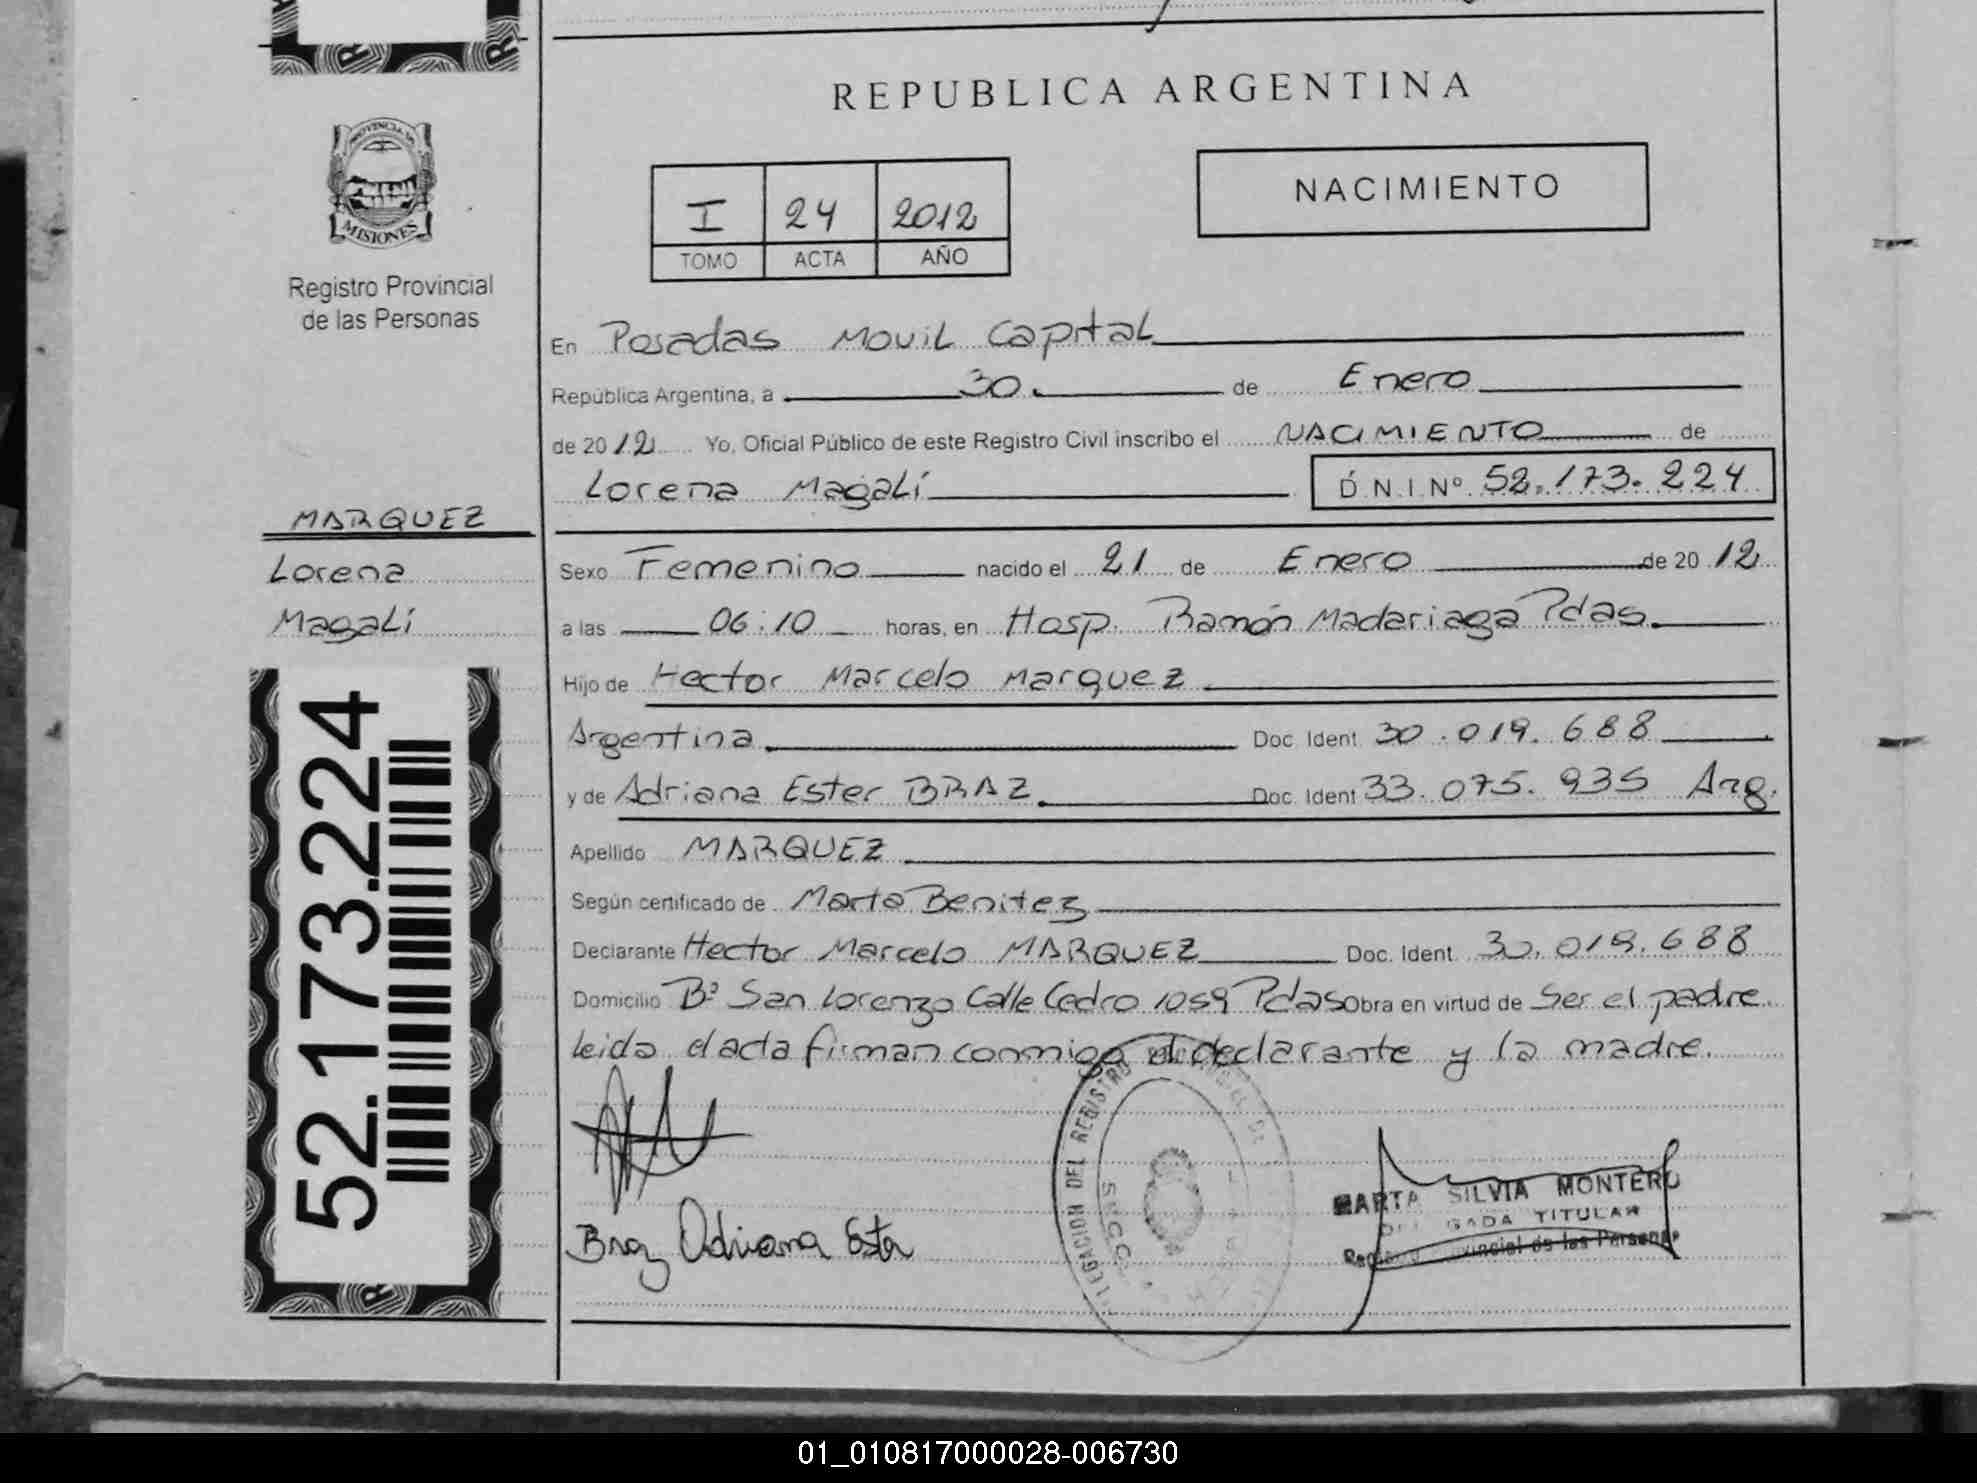 REPUBLICA ARGENTINA
PROVINCIA DE
MISIONES
Registro Provincial
de las Personas
I 24 2012
TOMO ACTA AÑO
NACIMIENTO
En Posadas Movil Capital
República Argentina, a 30 de Enero
de 2012 Yo, Oficial Público de este Registro Civil inscribo el NACIMIENTO de
Lorena Magalí D.N.I.Nº 52.173.224
MARQUEZ
Lorena
Magalí
52.173.224
Sexo Femenino nacido el 21 de Enero de 2012
a las 06:10 horas, en Hosp. Ramón Madariaga Pdas.
Hijo de Hector Marcelo Marquez
Argentina Doc. Ident 30.019.688
y de Adriana Ester BRAZ Doc. Ident 33.075.935 Arg.
Apellido MARQUEZ
Según certificado de Marta Benitez
Declarante Hector Marcelo MARQUEZ Doc. Ident. 30.019.688
Domicilio Bº San Lorenzo Calle Cedro 1059 Pdas Obra en virtud de Ser el padre
leida el acta firman conmigo el declarante y la madre.
Braz Adriana Ester
DELEGACION DEL REGISTRO
MARTA SILVIA MONTERO
DELEGADA TITULAR
Registro Provincial de las Personas
01_010817000028-006730